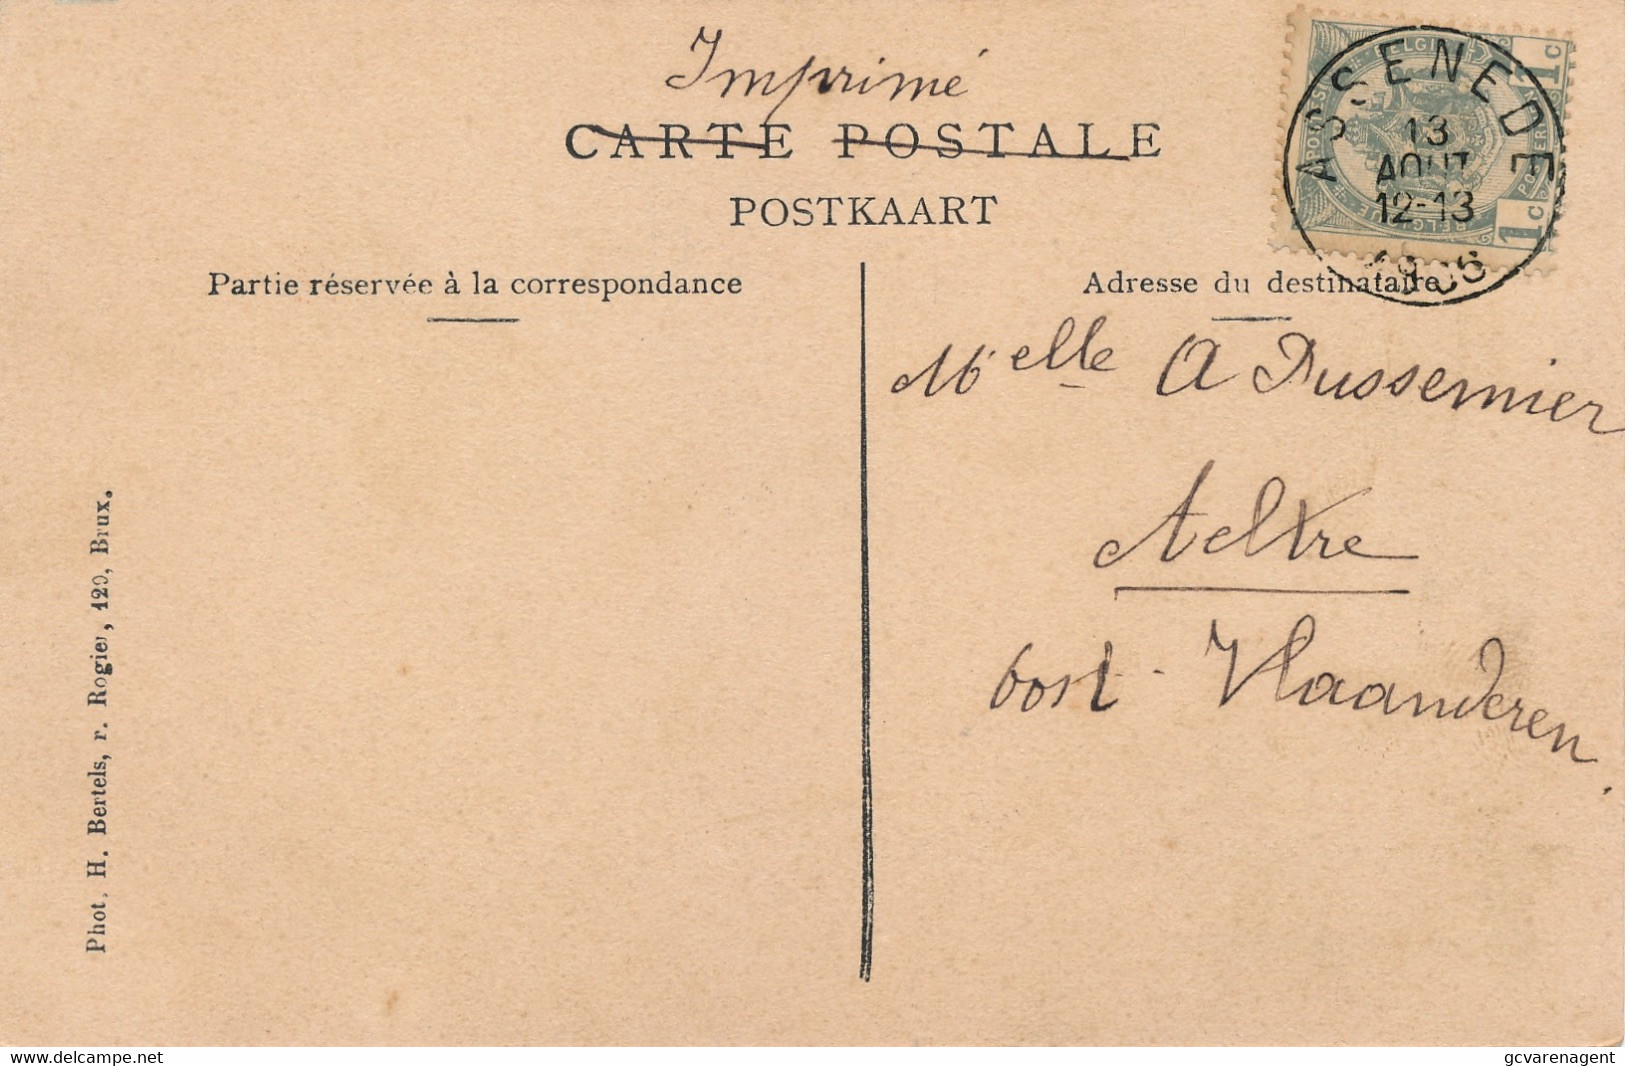 Imprimé
CARTE POSTALE
POSTKAART
Partie réservée à la correspondance
Adresse du destinataire
ASSENEDE
13
AOUT
12-13
1906
1c
1c
BELGIQUE
Melle A Dussemier
Aeltre
Oost-Vlaanderen.
Phot. H. Bertels, r. Rogier, 129, Brux.
delcampe.net
gcvarenagent